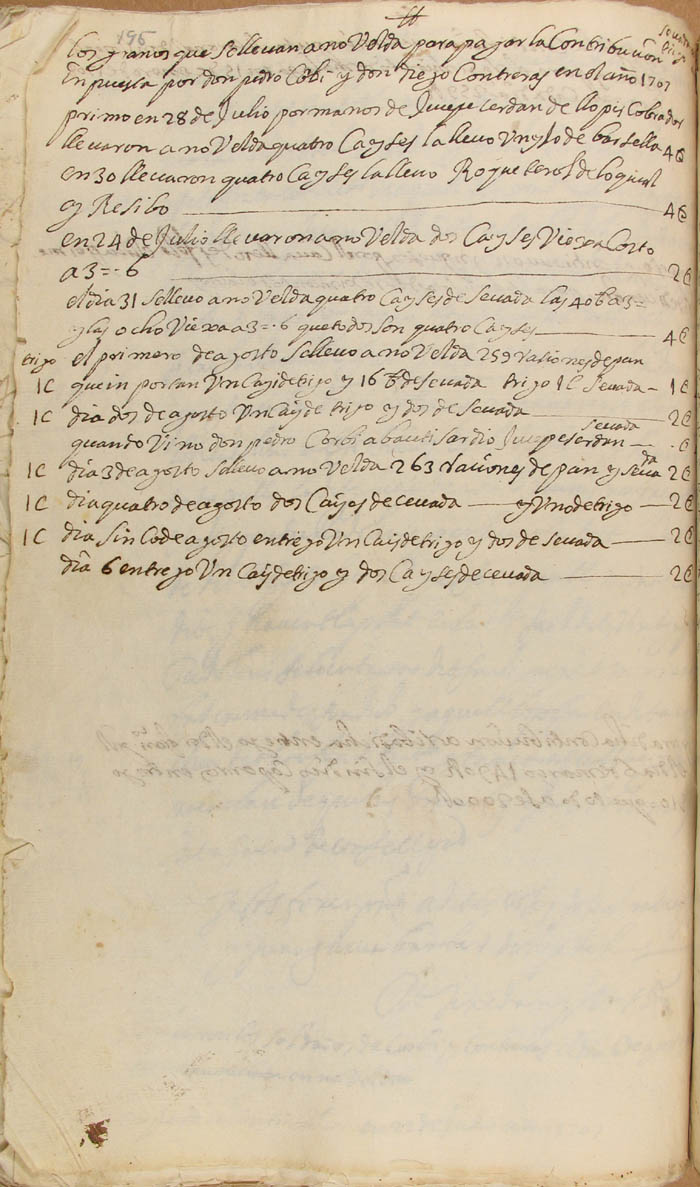 196
los granos que se llevan a no Velda para pagar la Contribusion
En puesta por don pedro Cobi y don diego Contreras en el año 1707
primo en 28 de Julio por manos de Jusepe Cerdan de llopis Cobrados
llevaron a no Velda quatro Cayses la llevo de barsella 4C
en 30 llevaron quatro Cayses la llevo Roque de lo qual
ay Resibo 4C
en 24 de Julio llevaron a no Velda dos Cayses Corto
a 3=.6 2C
el dia 31 se llevo a no Velda quatro Cayses de sevada las 40 b a 3=
y las ocho a 3=.6 que todos son quatro Cayses 4C
trigo el primero de agosto se llevo a no Velda 259 rasiones de pan
1C que in portan Un Cays de trigo y 16 b de sevada trigo 1C sevada 1C
1C dia dos de agosto Un Cays de trigo y dos de sevada 2C
quando Vino don pedro Corbi a bautisar dio Jusepe serdan sevada .6
1C dia 3 de agosto se llevo a no Velda 263 raciones de pan y sevada 2C
1C dia quatro de agosto dos Caises de cevada y Uno de trigo 2C
1C dia sinco de agosto entrego Un Cais de trigo y dos de sevada 2C
dia 6 entrego Un Cais de trigo y dos Cayses de cevada 2C